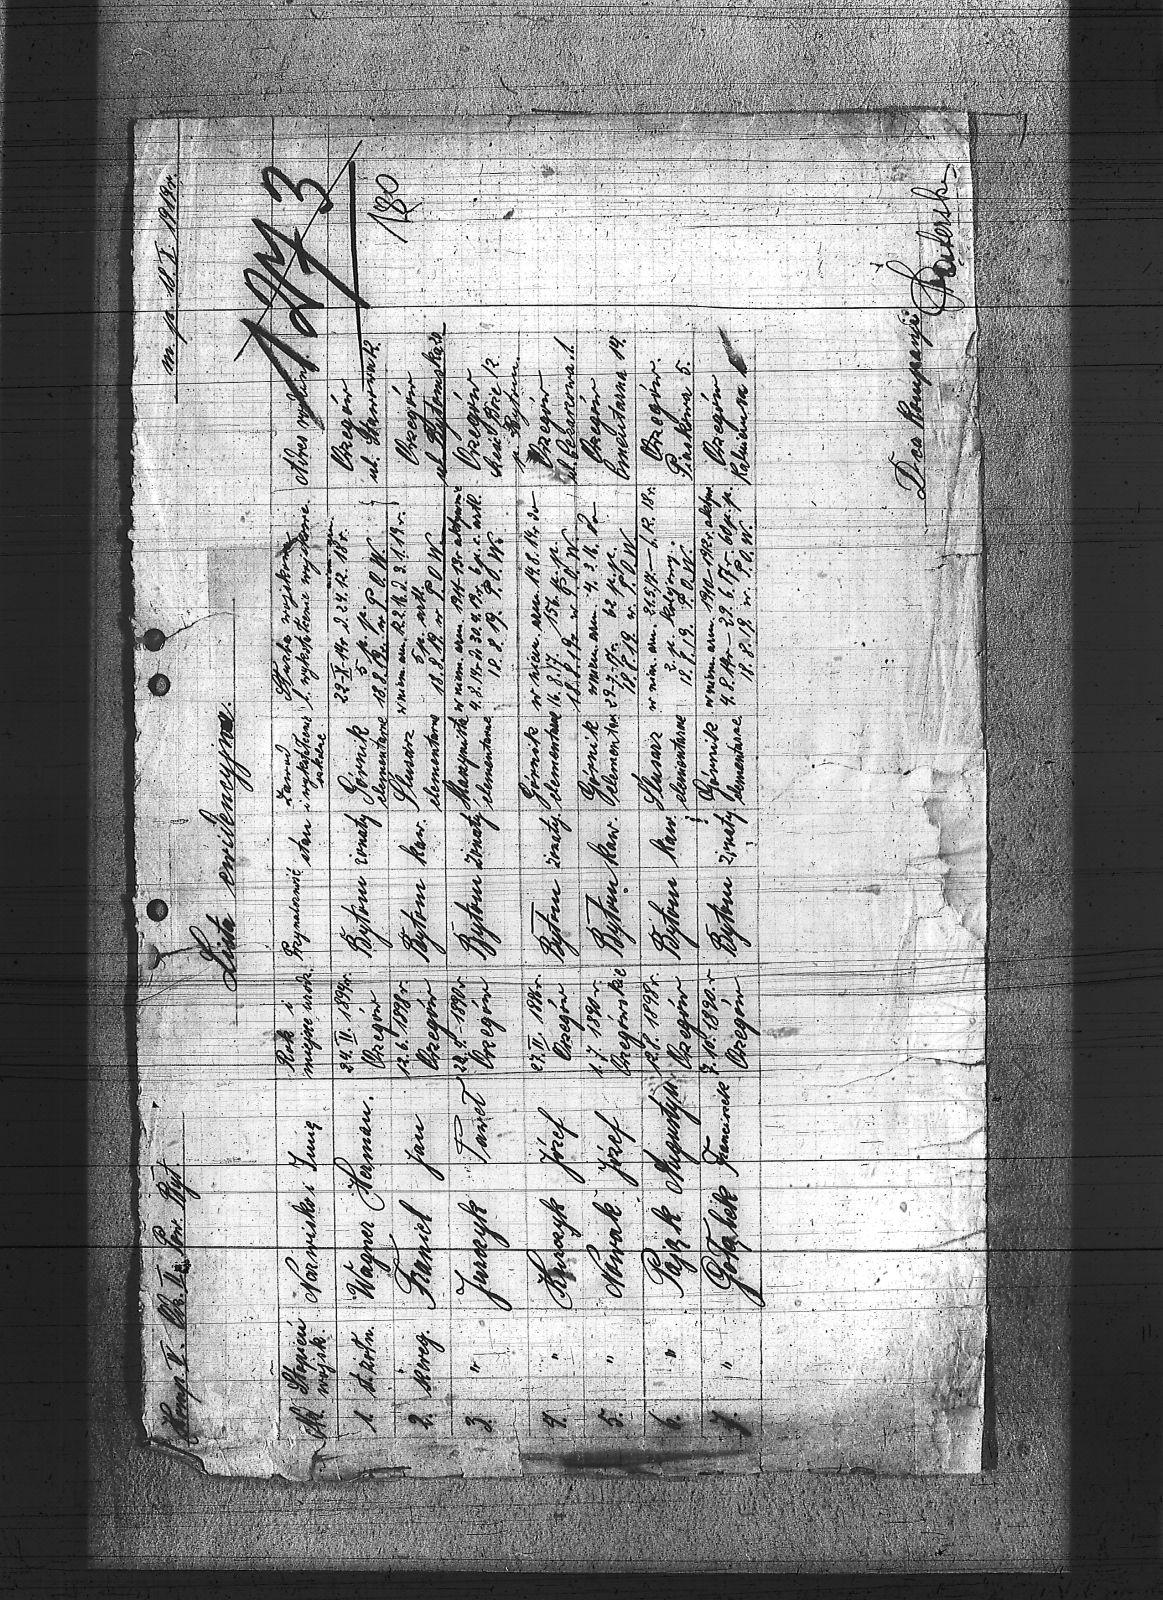 Komp. V. Ok. II. Pow. Byt
m. p. 18. X. 1919 r.
Lista ewidencyjna.
123
180
Nr. Stopień wojsk. Nazwisko i Imię Rok i miejsce urodz. Przynależność stan Zawód i wykształcenie szkolne Służba wojskowa i wykształcenie wojskowe. Adres
1. st. żołn. Wagner Herman. 24. II. 1894 r. Orzegów Bytom żonaty Górnik elementarne 22-X-14 r. d. 24. 12. 18 r. 5 p. p. 18.8.19 r. w P.O.W. Orzegów ul. 12.
2. szereg. Franiel Jan 12. 6. 1898 r. Orzegów Bytom kaw. Slusarz elementarne w niem. arm. 12.2.16 d. 3.1.19 r. 5 p. artl. 18.8.19 r. w P.O.W. Orzegów ul. Bytomska
3. " Jurczyk Paweł 1890 r. Orzegów Bytom żonaty Maszynista elementarne w niem. arm. 1911-13 r. 4. 8. 14 do 30. 4. 19 r. 6 p. c. artl. 18. 8. 19. P.O.W. Orzegów 12 p. Bytom.
4. " Kurczyk Józef 27. II. 1894 r. Orzegów Bytom żonaty. Górnik elementarne w niem. arm. 14. 8. 14 do 16. 8. 17 156 p. p. 18. 8. 19 r. w P.O.W. Orzegów ul. 1.
5. " Nowak Józef 1. 7. 1890 r. Orzegówskie Bytom kaw. Górnik elementarne w niem. arm. 4. 3. 16. do 22-7-17 r. 62 p. p. 18. 8. 19 w. P.O.W Orzegów Cmentarna 14.
6. " Pająk Augustyn 12. 8. 1898 r. Orzegów Bytom kaw. Slusarz elementarne w niem. arm. 21.5.17 — 6.12. 18 r. 2. p. 18. 8. 19. P.O.W. Orzegów Piaskowa 5.
7. " Gołąbek Franciszek 7. 10. 1890 r. Orzegów Bytom żonaty Górnik elementarne. w niem. arm. 1910-1912 r. 4. 8. 14 r — 29. 6. 18. 8. 19. w. P.O.W. Orzegów
D-ca Kompanji